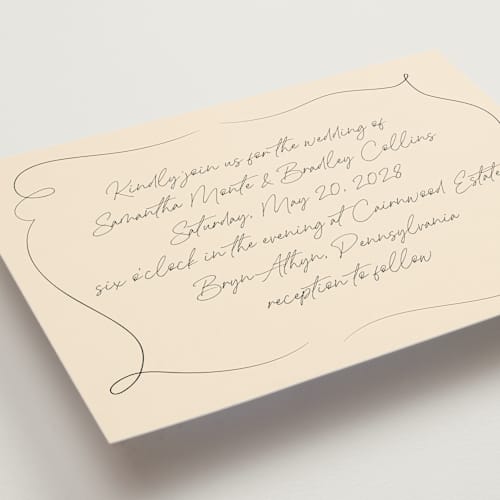 Kindly join us for the wedding of
Samantha Monte & Bradley Collins
Saturday, May 20, 2028
six o'clock in the evening at Cairnwood Estate
Bryn Athyn, Pennsylvania
reception to follow